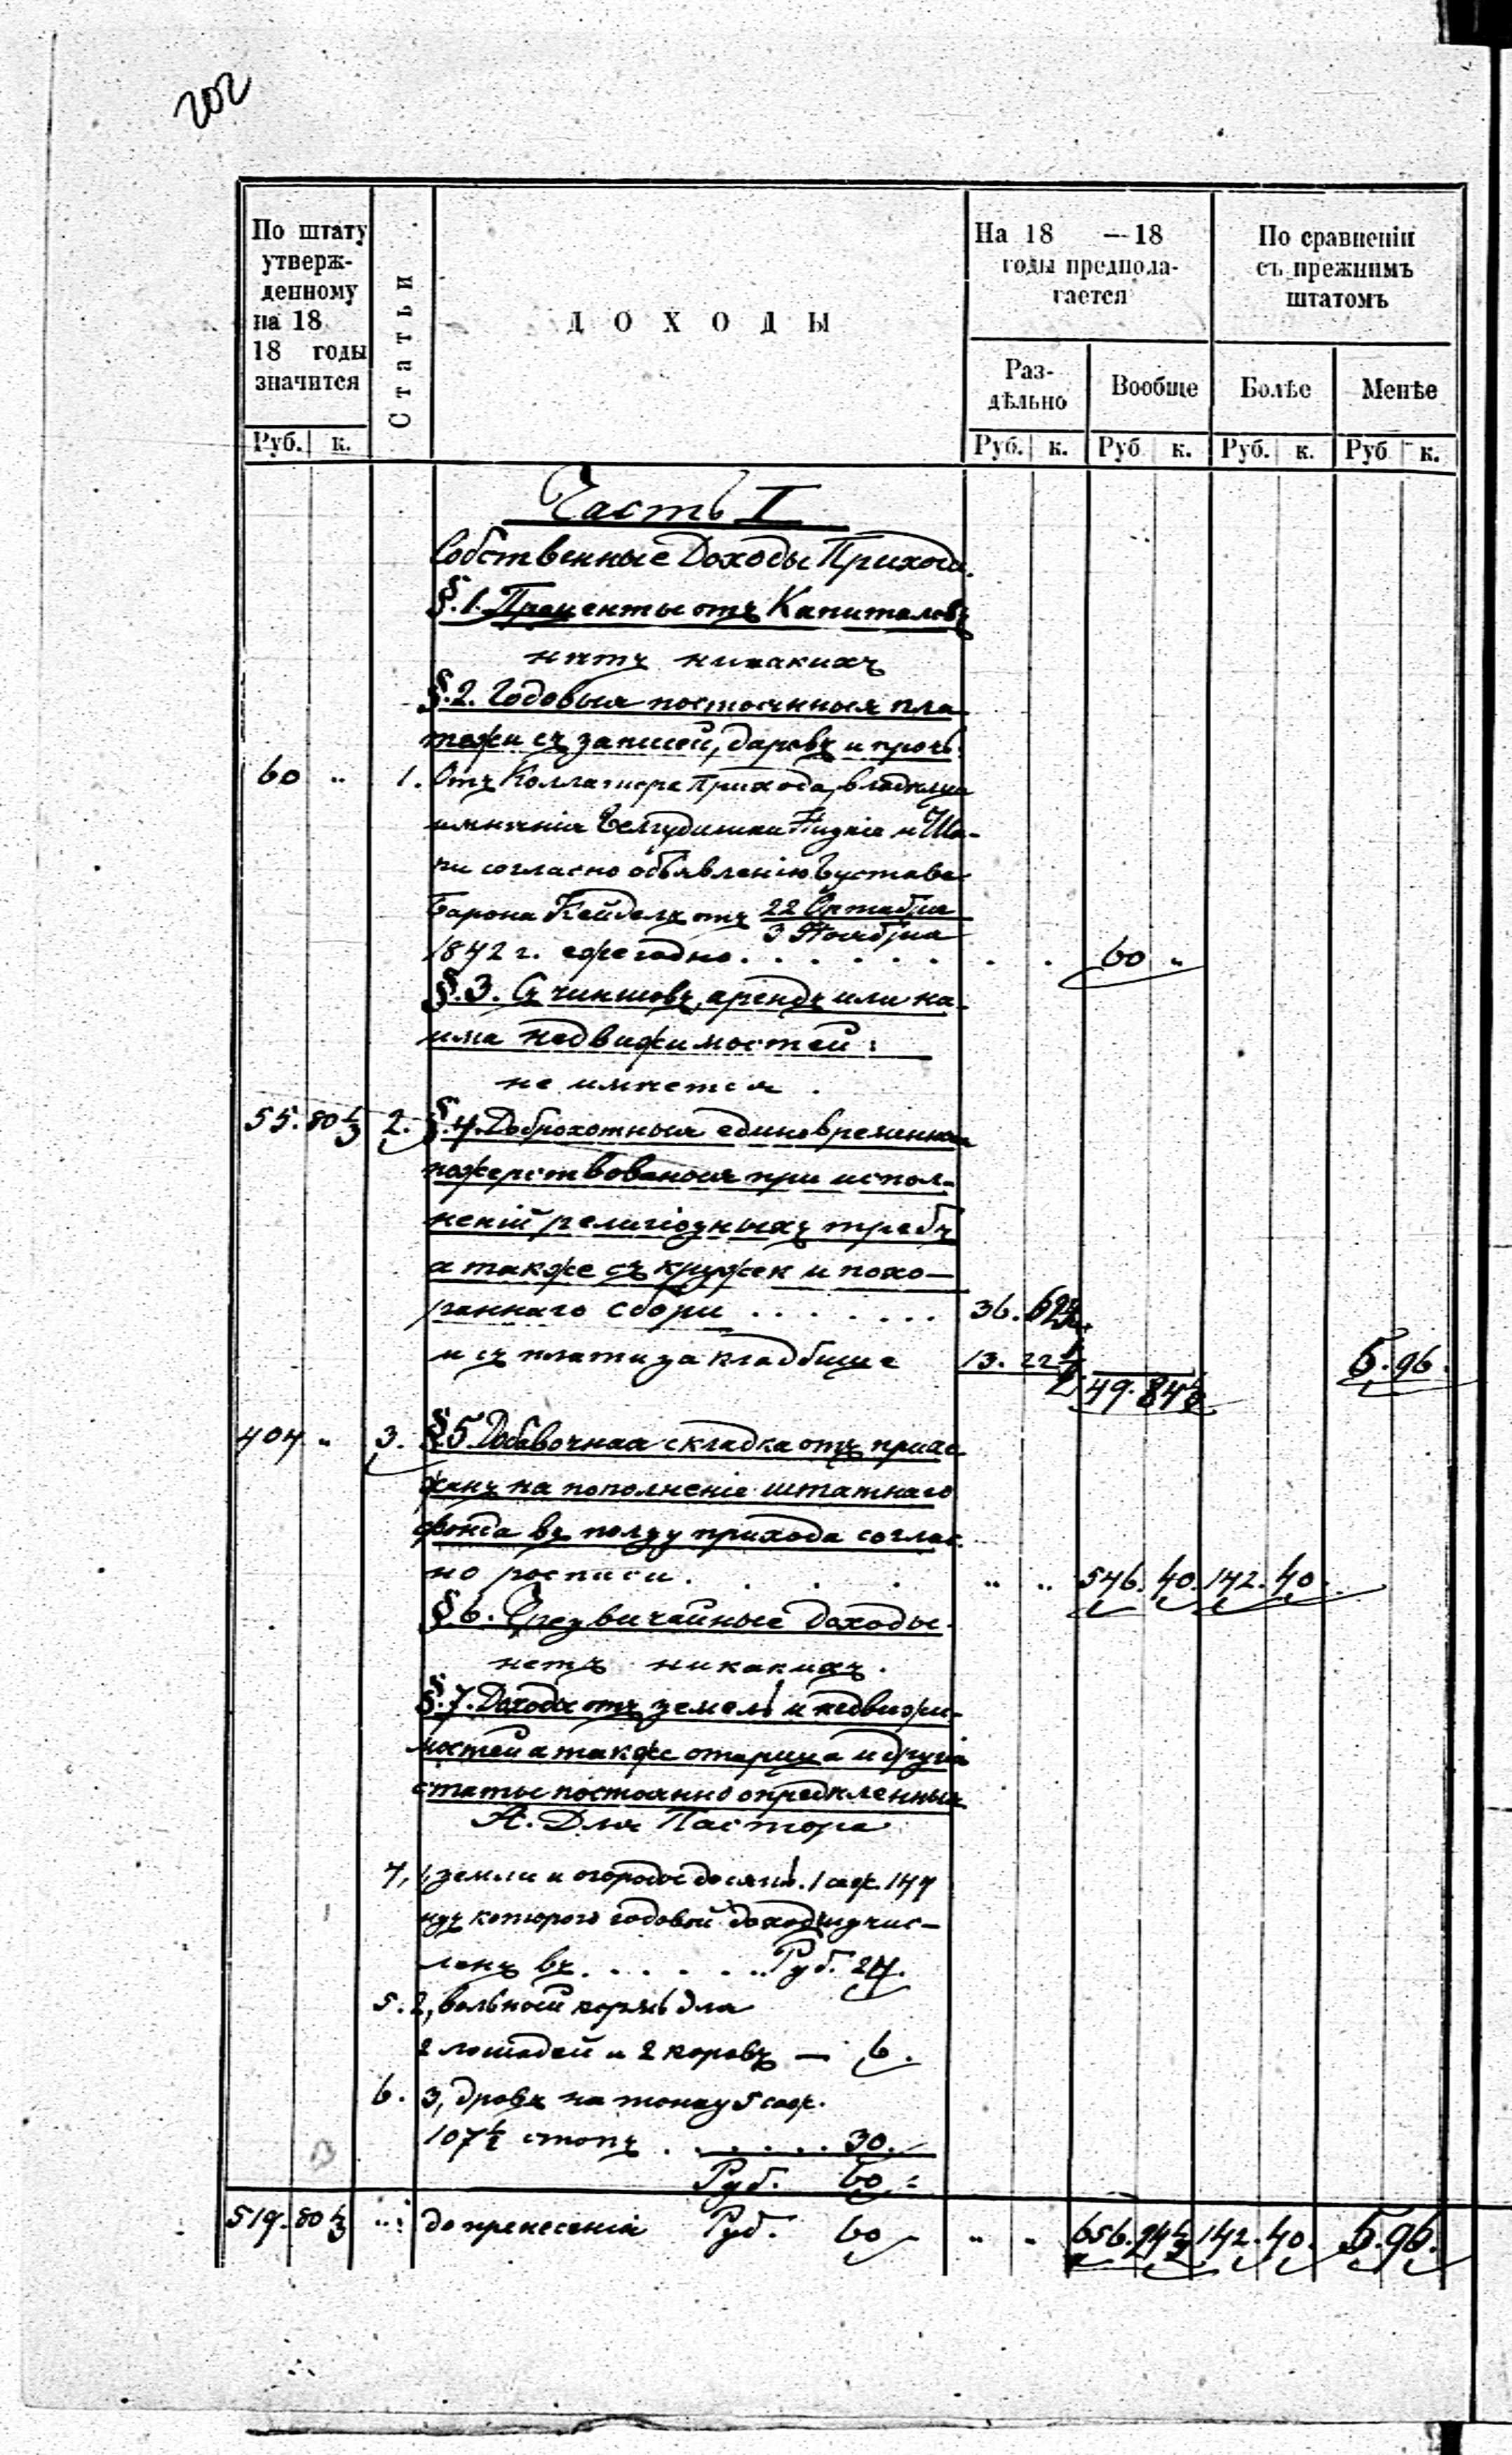 202
По штату
утверж-
денному
на 18
18 годы
значится
Руб. к.
Статьи
ДОХОДЫ
На 18 —18
годы предпола-
гается
Раз-
дѣльно
Руб. к.
Вообще
Руб к.
По сравненіи
съ прежнимъ
штатомъ
Болѣе
Руб. к.
Менѣе
Руб к.
Часть I
Собственные Доходы Прихода.
§.1. Проценты отъ Капиталовъ
нѣтъ никакихъ
§.2. Годовыя постоянныя пла-
тежи съ записей, даровъ и прочь.
60 „ 1. Отъ Коллатора прихода, владѣльца
имѣнія и Ша-
ви согласно объявленію Густава
Барона Кейделя отъ 22 Октября
3 Ноября
1842 г. ежегодно . . . . . . . . . 60 „
§.3. Съ чиншовъ, арендъ или на-
има недвижимостей:
не имѣется.
55. 80 1/3 2. §.4. Доброхотныя единовременныя
пожертвованія при испол-
неній религіозныхъ требъ
а также съ кружек и похо-
роннаго сбори . . . . . . . 36. 62
и съ плати за кладбище 13. 22 1/2 49. 84 1/2 5. 96.
404 „ 3. §5. Добавочная складка отъ прихо-
жанъ на пополненіе штатнаго
фонда въ ползу прихода соглас-
но росписи . . . . „ „ 546. 40. 142. 40.
§6. Чрезвичайные доходы.
нетъ никакихъ.
§.7. Доходы отъ земель и недвижи-
мостей а также отарица и другія
статы постоянно опредѣленныя
А. Для Пастора
4, 1, земли и огородос десят. 1 саж. 147
изъ котораго годовой доход изчис-
ленъ въ . . . . . . Руб. 24.
5. 2, вольной кормъ для
2 лошадей и 2 коровъ — 6.
6. 3, дровъ на топку 5 саж.
107 1/2 стопъ . . . . . . 30.
Руб. 60.
519. 80 1/3 „ до пренесенія Руб. 60 „ „ 656. 24 1/2 142. 40. 5. 96.